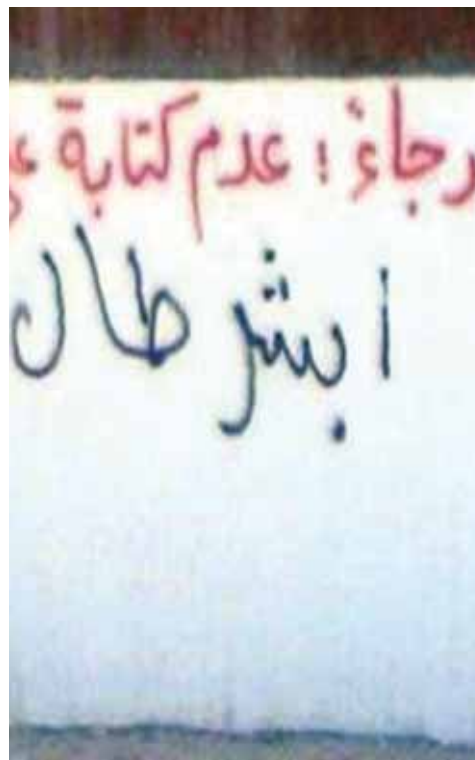 رجاءً : عدم كتابة
ابشر طال